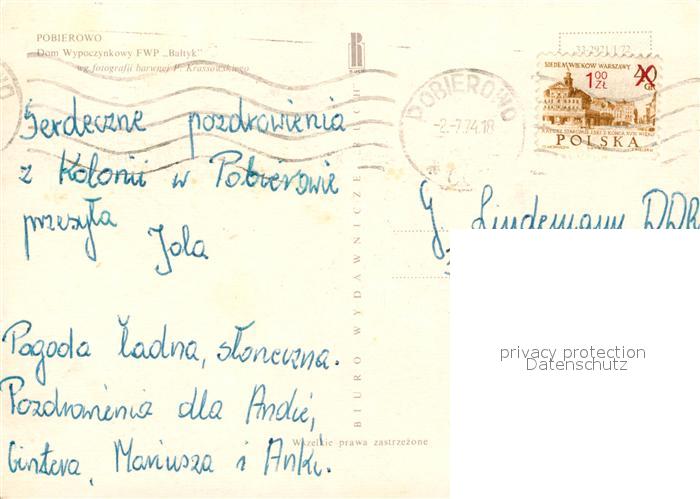 POBIEROWO
Dom Wypoczynkowy FWP „Bałtyk"
wg fotografii barwnej P. Krassowskiego
Serdeczne pozdrowienia
z Kolonii w Pobierowie
przesyła
Jola
Pogoda ładna, słoneczna.
Pozdrowienia dla Andié,
Gintera, Mariusza i Anki.
BIURO WYDAWNICZE RUCH
Wszelkie prawa zastrzeżone
POBIEROWO
-2.-7.74.18
SIEDEM WIEKÓW WARSZAWY
1 00 ZŁ
40 GR
POLSKA
J. Lindemann DDR
privacy protection
Datenschutz